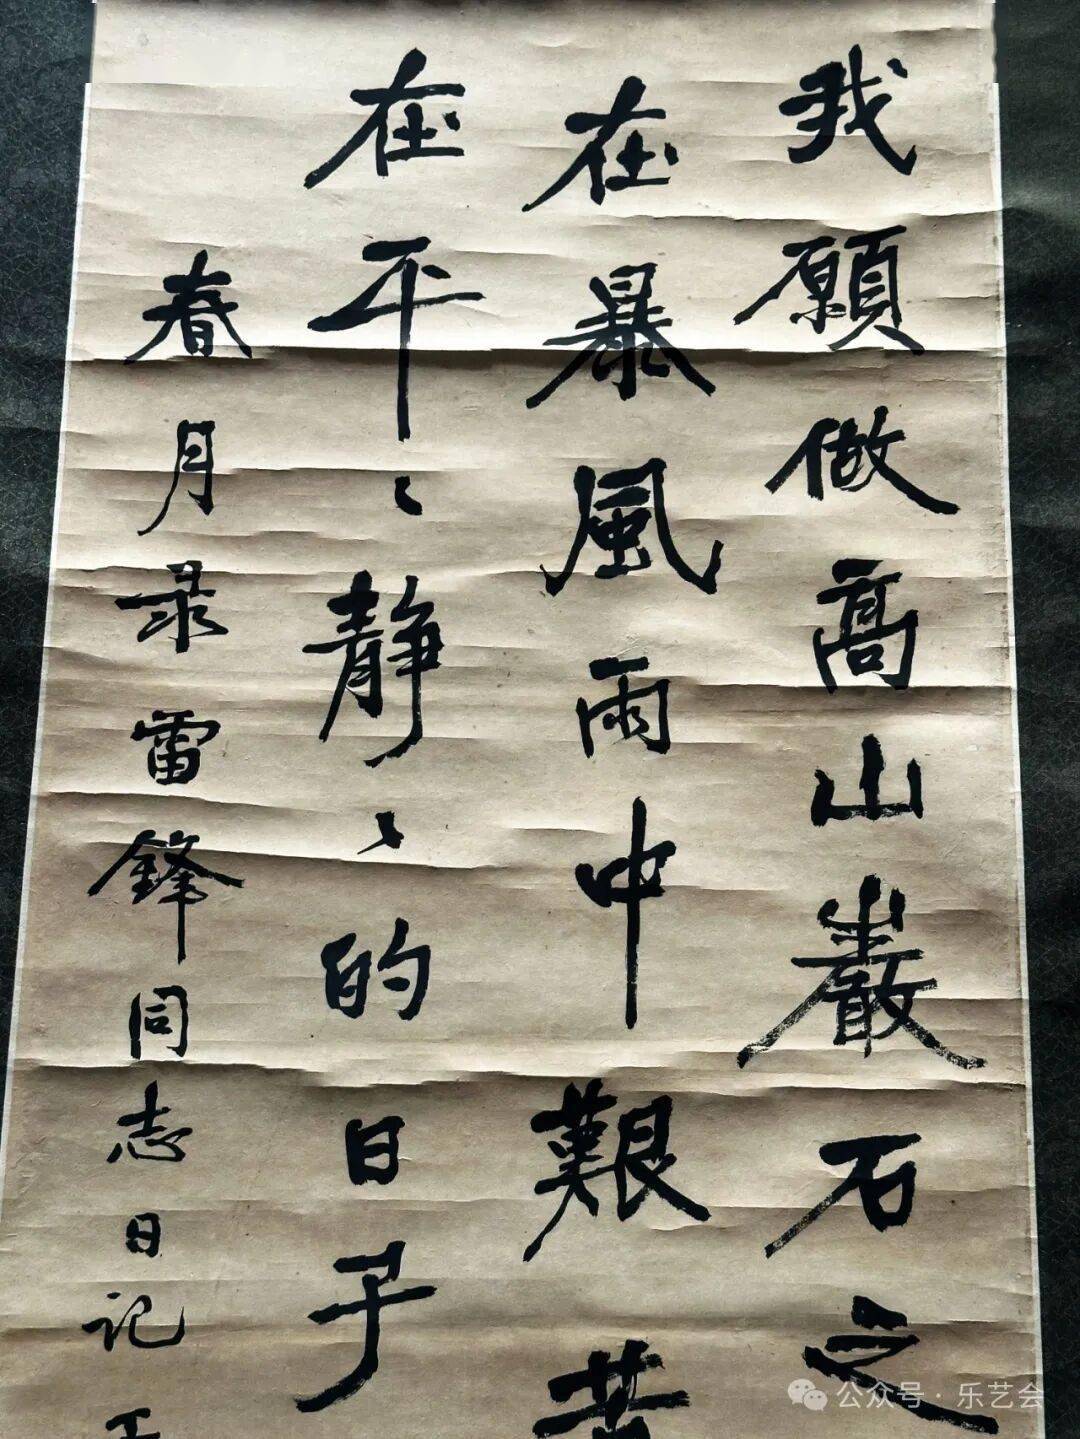 我願做高山巖石之
在暴風雨中艱苦
在平〻靜〻的日子
春月录雷鋒同志日记
公众号·乐艺会